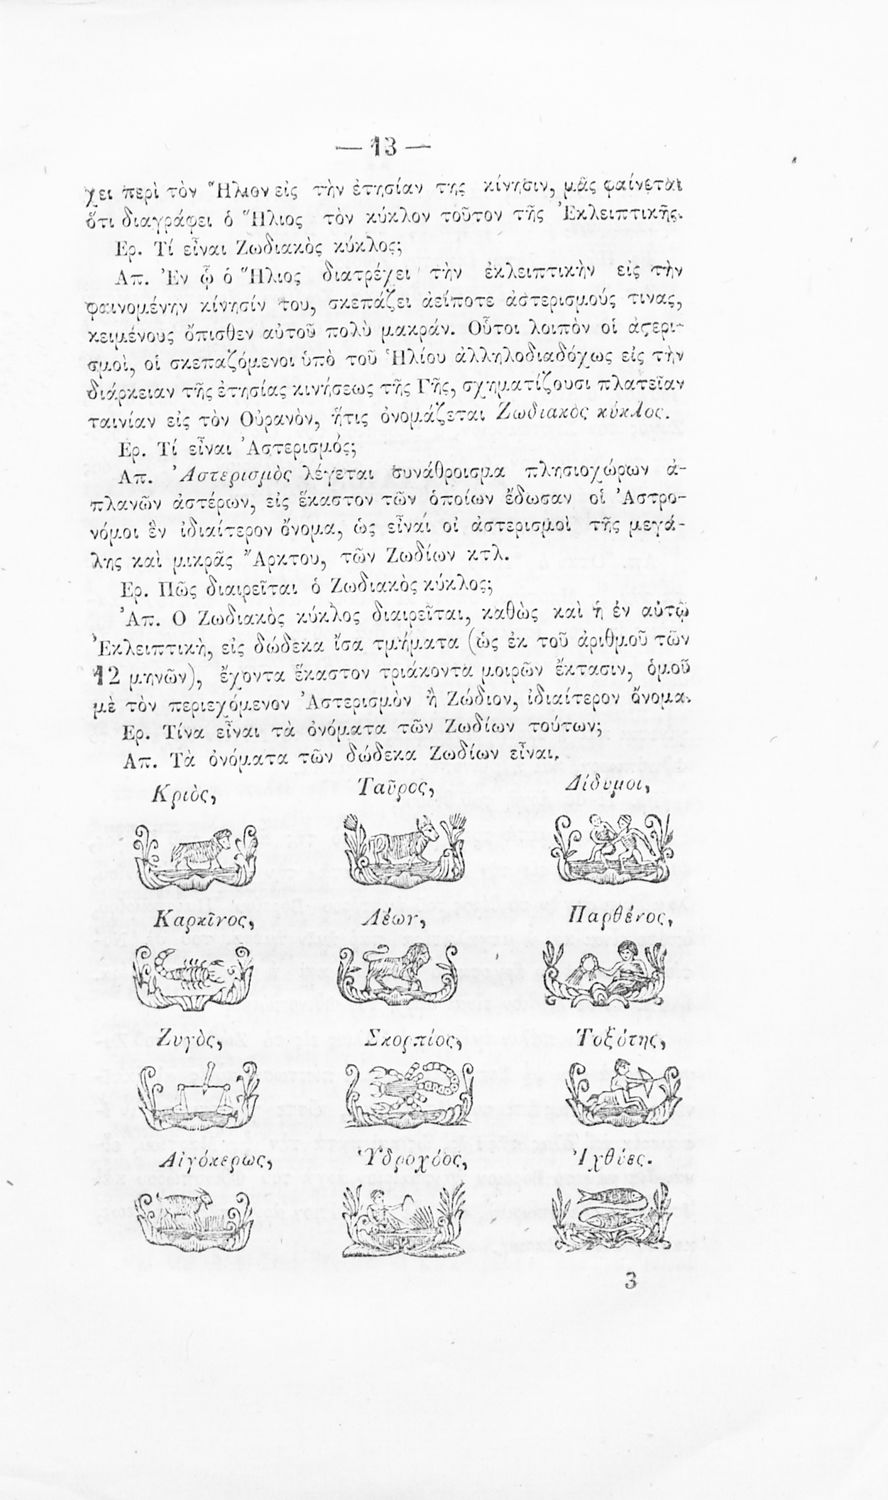 — 13 —
χει περὶ τὸν Ἥλιον εἰς τὴν ἐτησίαν της κίνησιν, μᾶς φαίνεται
ὅτι διαγράφει ὁ Ἥλιος τὸν κύκλον τοῦτον τῆς Ἐκλειπτικῆς.
Ερ. Τί εἶναι Ζωδιακὸς κύκλος;
Απ. Ἐν ᾧ ὁ Ἥλιος διατρέχει τὴν ἐκλειπτικὴν εἰς τὴν
φαινομένην κίνησίν του, σκεπάζει ἀείποτε ἀστερισμούς τινας,
κειμένους ὄπισθεν αὐτοῦ πολὺ μακράν. Οὗτοι λοιπὸν οἱ ἀϛερι-
σμοὶ, οἱ σκεπαζόμενοι ὑπὸ τοῦ Ἡλίου ἀλληλοδιαδόχως εἰς τὴν
διάρκειαν τῆς ἐτησίας κινήσεως τῆς Γῆς, σχηματίζουσι πλατεῖαν
ταινίαν εἰς τὸν Οὐρανὸν, ἥτις ὀνομάζεται Ζωδιακὸς κύκλος.
Ερ. Τί εἶναι Ἀστερισμός;
Απ. Ἀστερισμὸς λέγεται συνάθροισμα πλησιοχώρων ἀ-
πλανῶν ἀστέρων, εἰς ἕκαστον τῶν ὁποίων ἔδωσαν οἱ Ἀστρο-
νόμοι ἓν ἰδιαίτερον ὄνομα, ὡς εἶναι οἱ ἀστερισμοὶ τῆς μεγά-
λης καὶ μικρᾶς Ἄρκτου, τῶν Ζωδίων κτλ.
Ερ. Πῶς διαιρεῖται ὁ Ζωδιακὸς κύκλος;
Ἀπ. Ο Ζωδιακὸς κύκλος διαιρεῖται, καθὼς καὶ ἡ ἐν αὐτῷ
Ἐκλειπτικὴ, εἰς δώδεκα ἴσα τμήματα (ὡς ἐκ τοῦ ἀριθμοῦ τῶν
12 μηνῶν), ἔχοντα ἕκαστον τριάκοντα μοιρῶν ἔκτασιν, ὁμοῦ
μὲ τὸν περιεχόμενον Ἀστερισμὸν ἢ Ζώδιον, ἰδιαίτερον ὄνομα.
Ερ. Τίνα εἶναι τὰ ὀνόματα τῶν Ζωδίων τούτων;
Απ. Τὰ ὀνόματα τῶν δώδεκα Ζωδίων εἶναι,
Κριὸς, Ταῦρος, Δίδυμοι,
Καρκῖνος, Λέων, Παρθένος,
Ζυγὸς, Σκορπίος, Τοξότης,
Αἰγόκερως, Ὑδροχόος, Ἰχθύες.
3